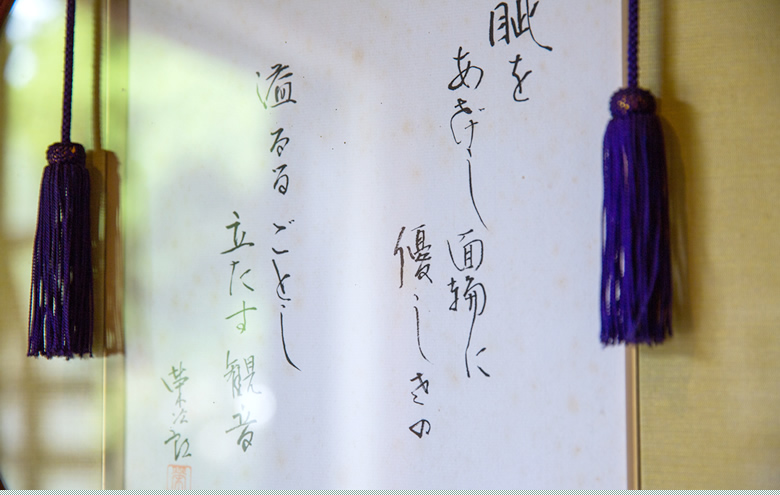 眦を
あさげし面輪に
優しさの
溢るるごとし
立たす観音
榮次郎